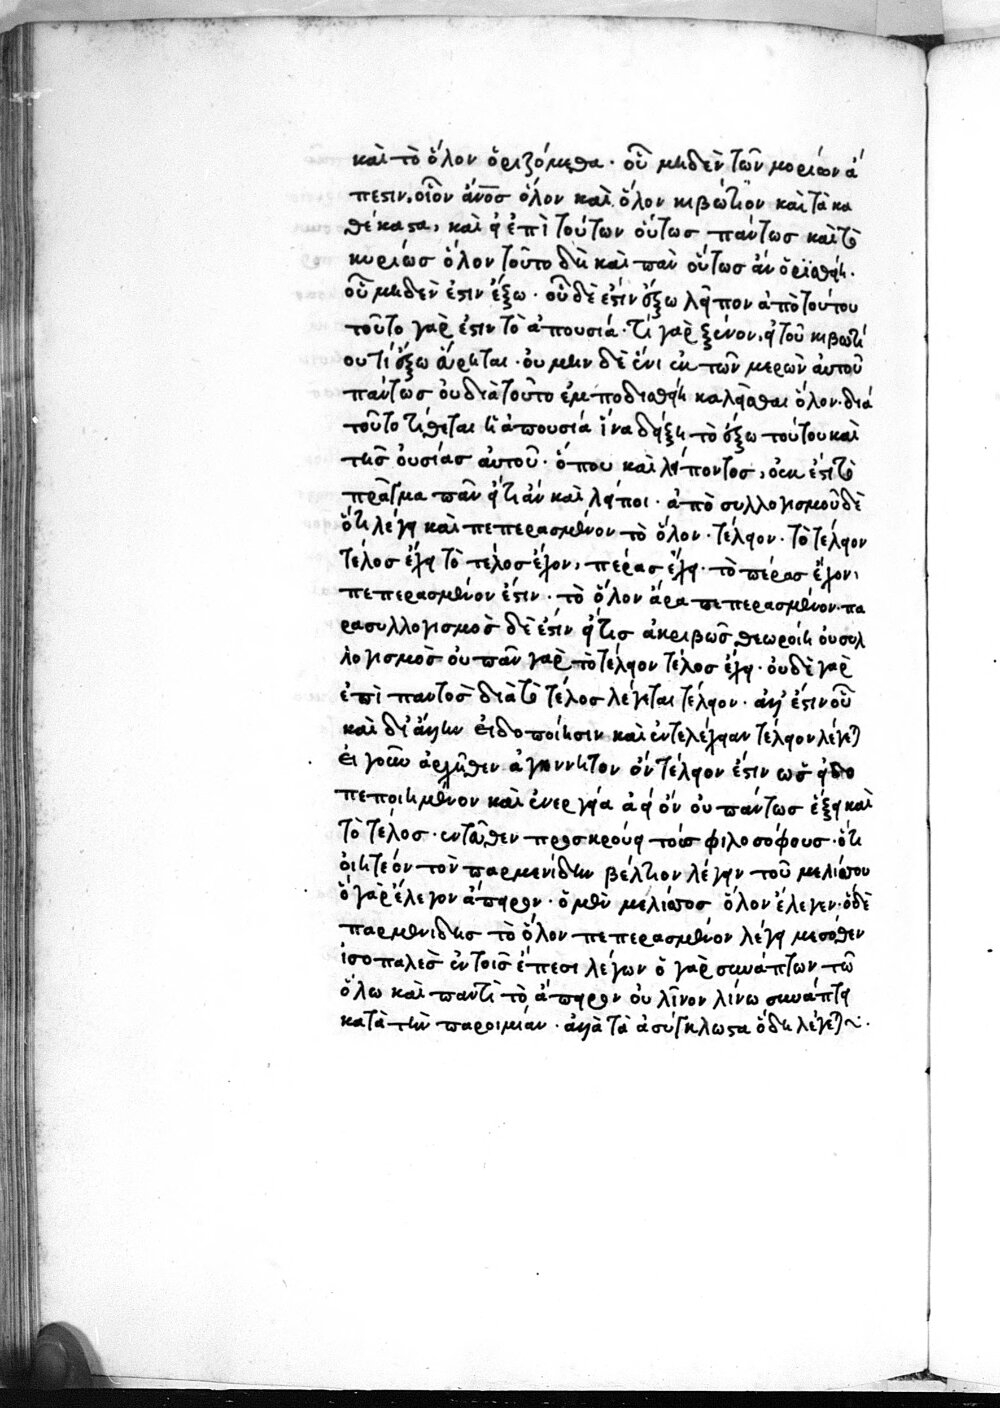 καὶ τὸ ὅλον ὁριζόμεθα · οὗ μηδὲν τῶν μορίων ἄ
πεστιν, οἷον ἄνος ὅλον καὶ ὅλον κιβώτιον καὶ τὰ κα
θέκαστα, καὶ εἰ ἐπὶ τούτων οὕτως πάντως καὶ τὸ
κυρίως ὅλον τοῦτο δὴ καὶ πᾶν οὕτως ἂν ὁρισθείη ·
οὗ μηδέν ἐστιν ἔξω · οὗ δὲ ἐστὶν ἔξω λεῖπον ἀπὸ τούτου
τοῦτο γάρ ἐστιν τὸ ἀπουσία · τί γὰρ ξένον, εἰ τοῦ κιβωτί
ου τί ἔξω αἴρηται · οὐ μὴν δὲ ἕνι ἐκ τῶν μερῶν αὐτοῦ
πάντως οὐ διὰ τοῦτο ἐμποδισθείη καλεῖσθαι ὅλον · διὰ
τοῦτο τίθεται ἡ ἀπουσία ἵνα δείξη τὸ ἔξω τούτου καὶ
τῆς οὐσίας αὐτοῦ · ὅπου καὶ λείποντος, οὐκ ἔστι τὸ
πρᾶγμα πᾶν εἴ τι ἂν καὶ λείποι · ἀπὸ συλλογισμοῦ δὲ
ὅτι λέγει καὶ πεπερασμένον τὸ ὅλον · τέλειον · τὸ τέλειον
τέλος ἔχει τὸ τέλος ἔχον, πέρας ἔχει · τὸ πέρας ἔχον,
πεπερασμένον ἐστίν · τὸ ὅλον ἄρα πεπερασμένον · πα
ρασυλλογισμὸς δέ ἐστιν εἴ τις ἀκριβῶς θεωροίη οὐ συλ
λογισμὸς οὐ πᾶν γὰρ τὸ τέλειον τέλος ἔχει · οὐδὲ γὰρ
ἐπὶ παντὸς διὰ τὸ τέλος λέγεται τέλειον · ἀλλ' ἔστιν οὗ
καὶ δι' ἄλλην εἰδοποίησιν καὶ ἐντελέχειαν τέλειον λέγεται
εἰ γοῦν ἀρχῆθεν ἀγέννητον ὂν τέλειον ἐστὶν ὡς εἰδο
πεποιημένον καὶ ἐνεργεία ἀεὶ ὂν οὐ πάντως ἕξει καὶ
τὸ τέλος · ἐνταῦθεν προσκρούει τοῖς φιλοσόφους · ὅτι
οἰητέον τὸν παρμενίδην βέλτιον λέγειν τοῦ μελίσσου
ὃ γὰρ ἔλεγον ἄπειρον · ὁ μὲν μελίσσος ὅλον ἔλεγεν · ὁ δὲ
παρμενίδης τὸ ὅλον πεπερασμένον λέγει μεσόθεν
ἰσοπαλὲς ἐν τοῖς ἔπεσι λέγων ὁ γὰρ συνάπτων τῶ
ὅλω καὶ παντὶ τὸ ἄπειρον οὐ λῖνον λίνω συνάπτει
κατὰ τὴν παροιμίαν · ἀλλὰ τὰ ἀσύγκλωστα ὅδη λέγεται